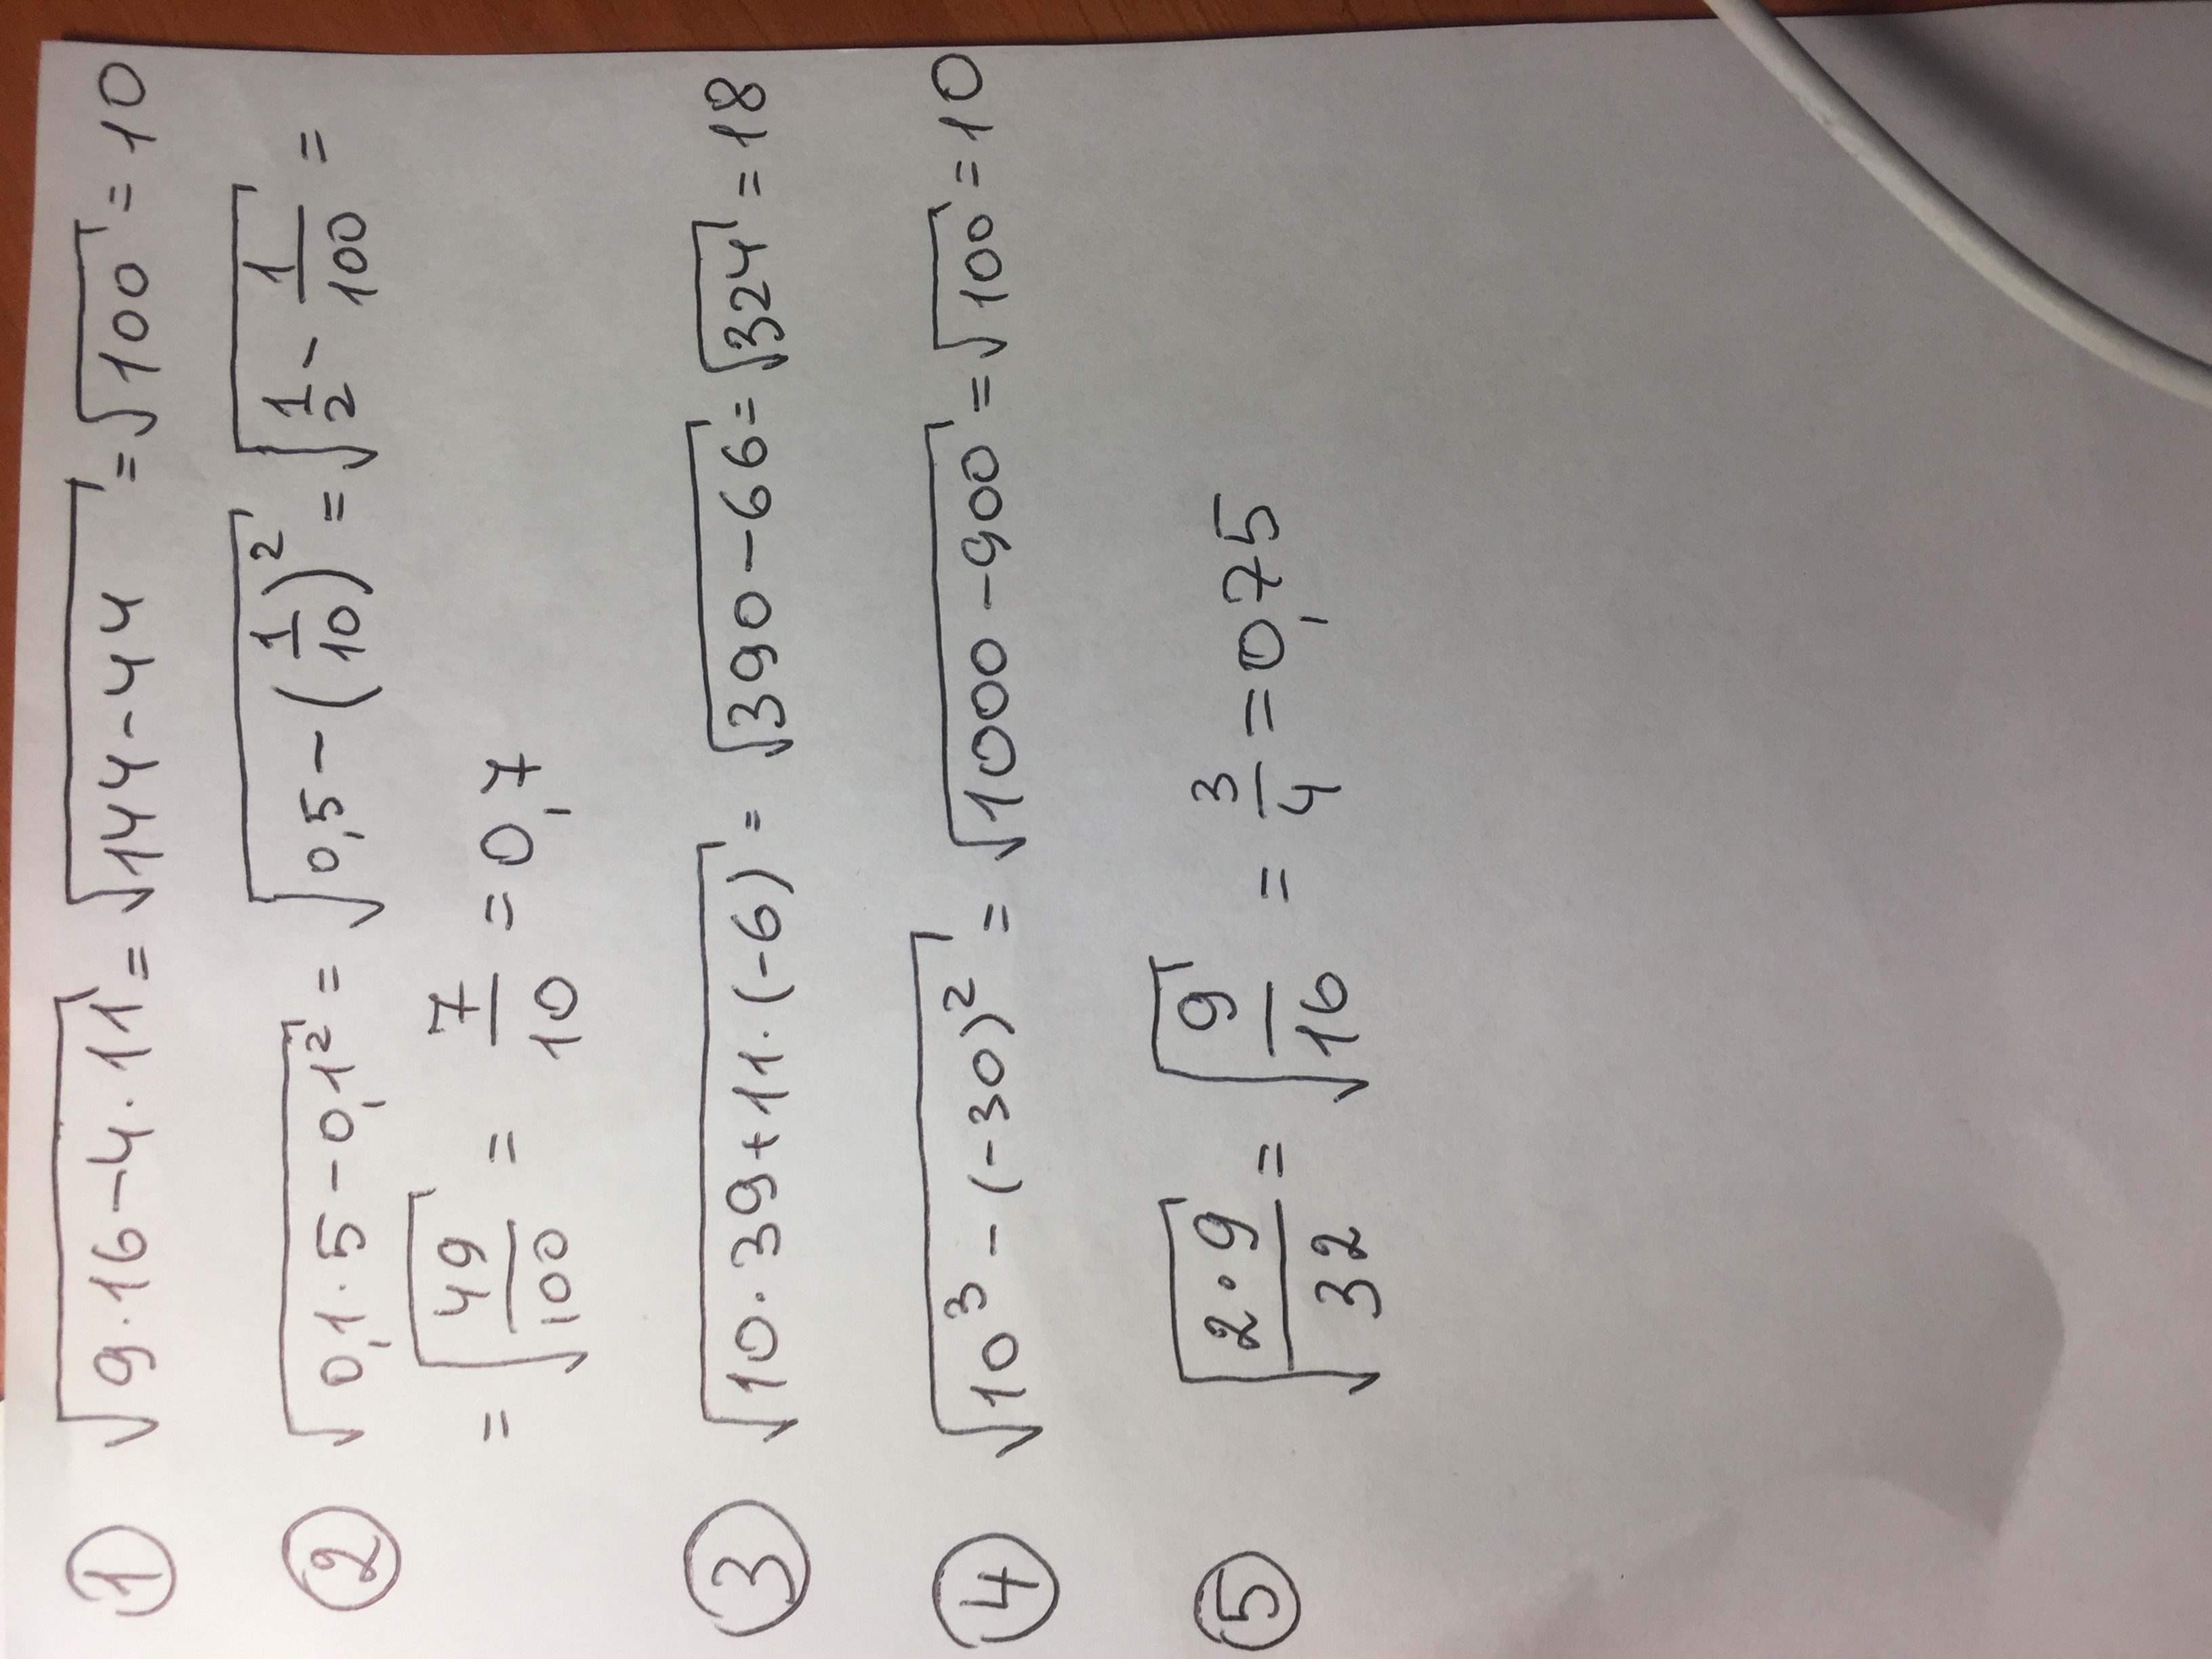 ① √(9·16-4·11) = √(144-44) = √100 = 10
② √(0,1·5-0,1²) = √(0,5-(1/10)²) = √(1/2 - 1/100) =
= √(49/100) = 7/10 = 0,7
③ √(10·39+11·(-6)) = √(390-66) = √324 = 18
④ √(10³-(-30)²) = √(1000-900) = √100 = 10
⑤ √((2·9)/32) = √(9/16) = 3/4 = 0,75